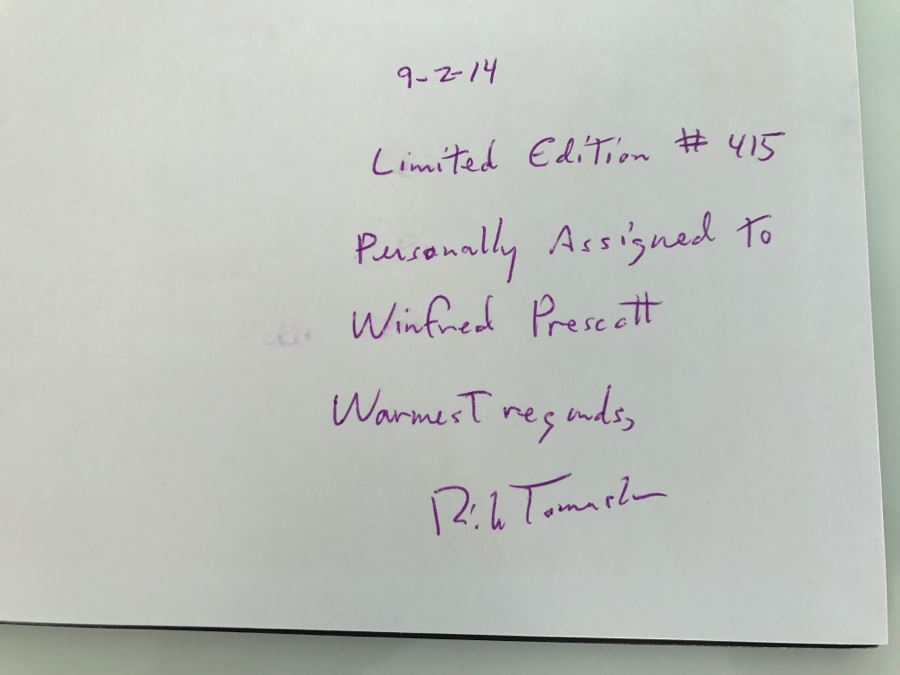 9-2-14
Limited Edition # 415
Personally Assigned To
Winfred Prescott
Warmest regards,
Rich